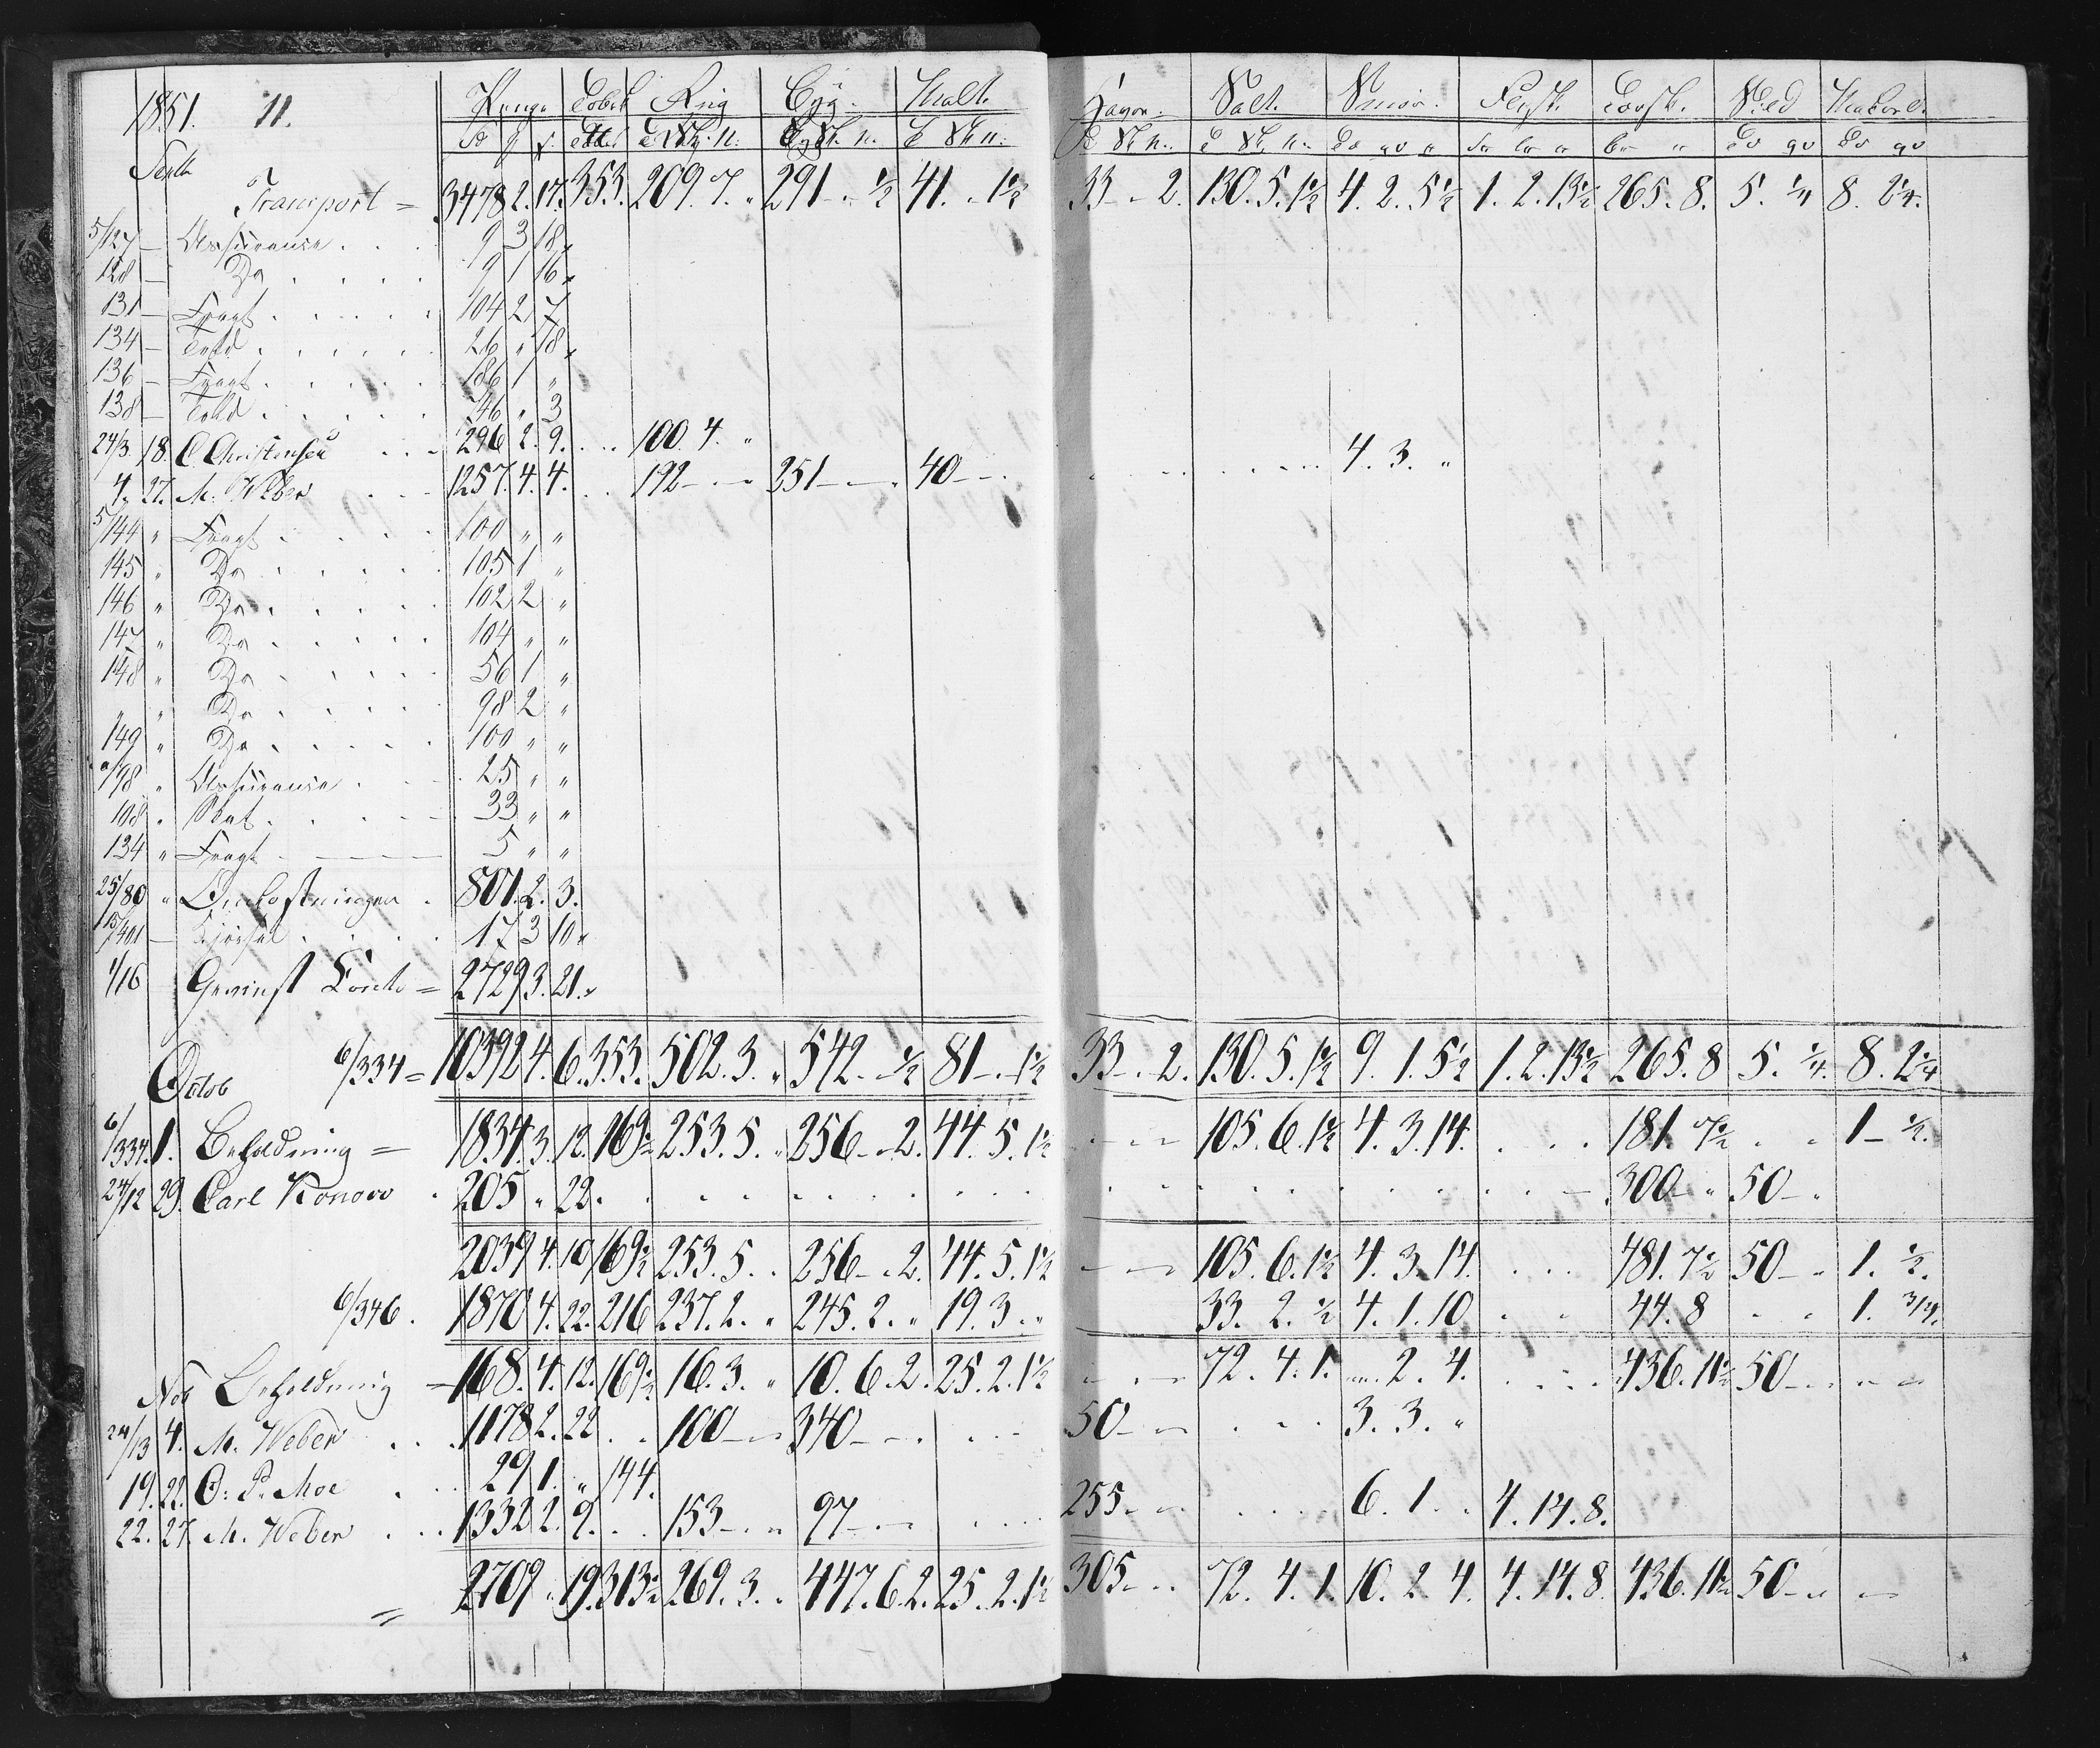 1851. 11. Penge Tobak Rug Byg. Malt. Havre. Salt. Smør. Flesk. Torsk. Sild Makrel.
Septb
Transport = 3478 2. 17. 353. 209. 7. " 291 - " ½ 41. " 1½ 33 - " 2. 130. 5. 1½ 4. 2. 5½ 1. 2. 13½ 265. 8. 5. ¼ 8. 2¼.
5/127 — Assurance . . . 9 3 18 "
128 — Do . . . . . 9 1 16 "
131 — Fragt . . . . . 104 2 7
134 — Told . . . . . 26 " 18 "
136 — Fragt . . . . . 186 1 "
138 — Told . . . . . 46 " 3
24/3. 18. C. Christensen . . . 296 2. 9. . . 100. 4. " 4. 3. "
4. 27. M. Weber . . . 1257. 4. 4. . . 192 - " - 251 - " - 40 - "
5/144 " Fragt . . . . 100 " "
145 " Do . . . . . 105 1 "
146 " Do . . . . . 102 2 "
147 " Do . . . . . 104 " "
148 " Do . . . . . 56 1 "
" " Do . . . . . 98 2 "
149 " Do . . . . . 100 " "
/98 " Assurance . . . 25 " "
108 " . . . . 33 " "
134 " Fragt . . . . 5 " "
25/80 " Omkostninger . 801. 2. 3.
/401 — Kjørsel . . . . 17 3 10 "
1/16 Gevinst Conto = 2729 3. 21. "
6/334 = 10392 4. 6. 353. 502. 3. " 542. - ½ 81 - . 1½ 33 - . 2. 130. 5. 1½ 9. 1. 5½ 1. 2. 13½ 265. 8 5. ¼. 8. 2¼
Octob
6/334. 1. Beholdning = 1834. 3. 12. 169½ 253. 5. " 256 - . 2. 44. 5. 1½ - - - 105. 6. 1½ 4. 3. 14. . . . 181. 7½ . . 1 - ½.
24/12 29. Carl Konow . 205 " 22. . . . . . . . . . . . . . . . 300 - " 50 - .
2039 4. 10 169½ 253. 5. . 256 - . 2. 44. 5. 1½ - - - 105. 6. 1½ 4. 3. 14. . . . 481. 7½ 50 - . 1. ½.
6/346. 1870 4. 22. 216 237. 2. " 245. 2. " 19. 3. " 33. 2. ½ 4. 1. 10 . . 44. 8 . . 1. 3/4.
Nov Beholdning = 168. 4. 12. 169½ 16. 3. " 10. 6. 2. 25. 2. 1½ - - - 72. 4. 1. " 2. 4. . . . 436. 11½ 50 - . . - "
24/13 4. M. Weber . . . 1178 2. 22 . . 100 - " 340 - . . . . - 50 - " . . . 3. 3. "
19. 22. O: P. Moe . . . 29 1. " 144.
22. 27. M. Weber . . . 1332 2. 9. . . 153 - . " 97 - . - . . . . 255 - " . . . 6. 1 . . 4. 14. 8.
= 2709 " 19. 313½ 269. 3. . 447. 6. 2. 25. 2. 1½ 305 - . . 72. 4. 1. 10. 2 4. 4. 14. 8. 436. 11½ 50 - " -